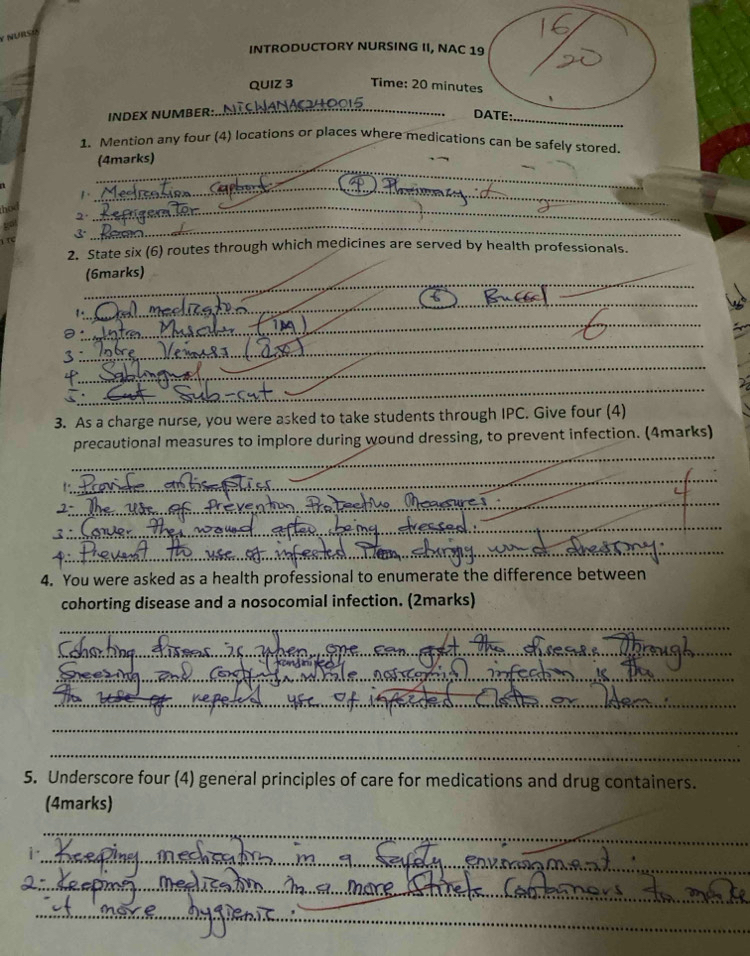 Y NURS
INTRODUCTORY NURSING II, NAC 19
16/20
QUIZ 3 Time: 20 minutes
INDEX NUMBER: NTCWANAC240015 DATE:
1. Mention any four (4) locations or places where medications can be safely stored.
(4marks)
1. Medication Capbort (4) Pharmacy
2. Refrigerator 2
3. Room
2. State six (6) routes through which medicines are served by health professionals.
(6marks)
1. Oral medication (6) Buccal
2. Intra Muscular (IM) 6
3. Intra Venous
4. Sublingual
5. Sub-cut
3. As a charge nurse, you were asked to take students through IPC. Give four (4)
precautional measures to implore during wound dressing, to prevent infection. (4marks)
1. Provide antiseptics
2. The use of Prevention Protective Measures. 4
3. Cover the wound after being dressed.
4. Prevent the use of infected during wound dressing.
4. You were asked as a health professional to enumerate the difference between
cohorting disease and a nosocomial infection. (2marks)
Cohorting diseas is when one can get the disease through
Sneezing and while nosocomial infection is the
the repeted use of infected Cloths or Item.
5. Underscore four (4) general principles of care for medications and drug containers.
(4marks)
1. Keeping medication in a Safety environment.
2. Keeping medication in a more Containers to make
it more hygienic.